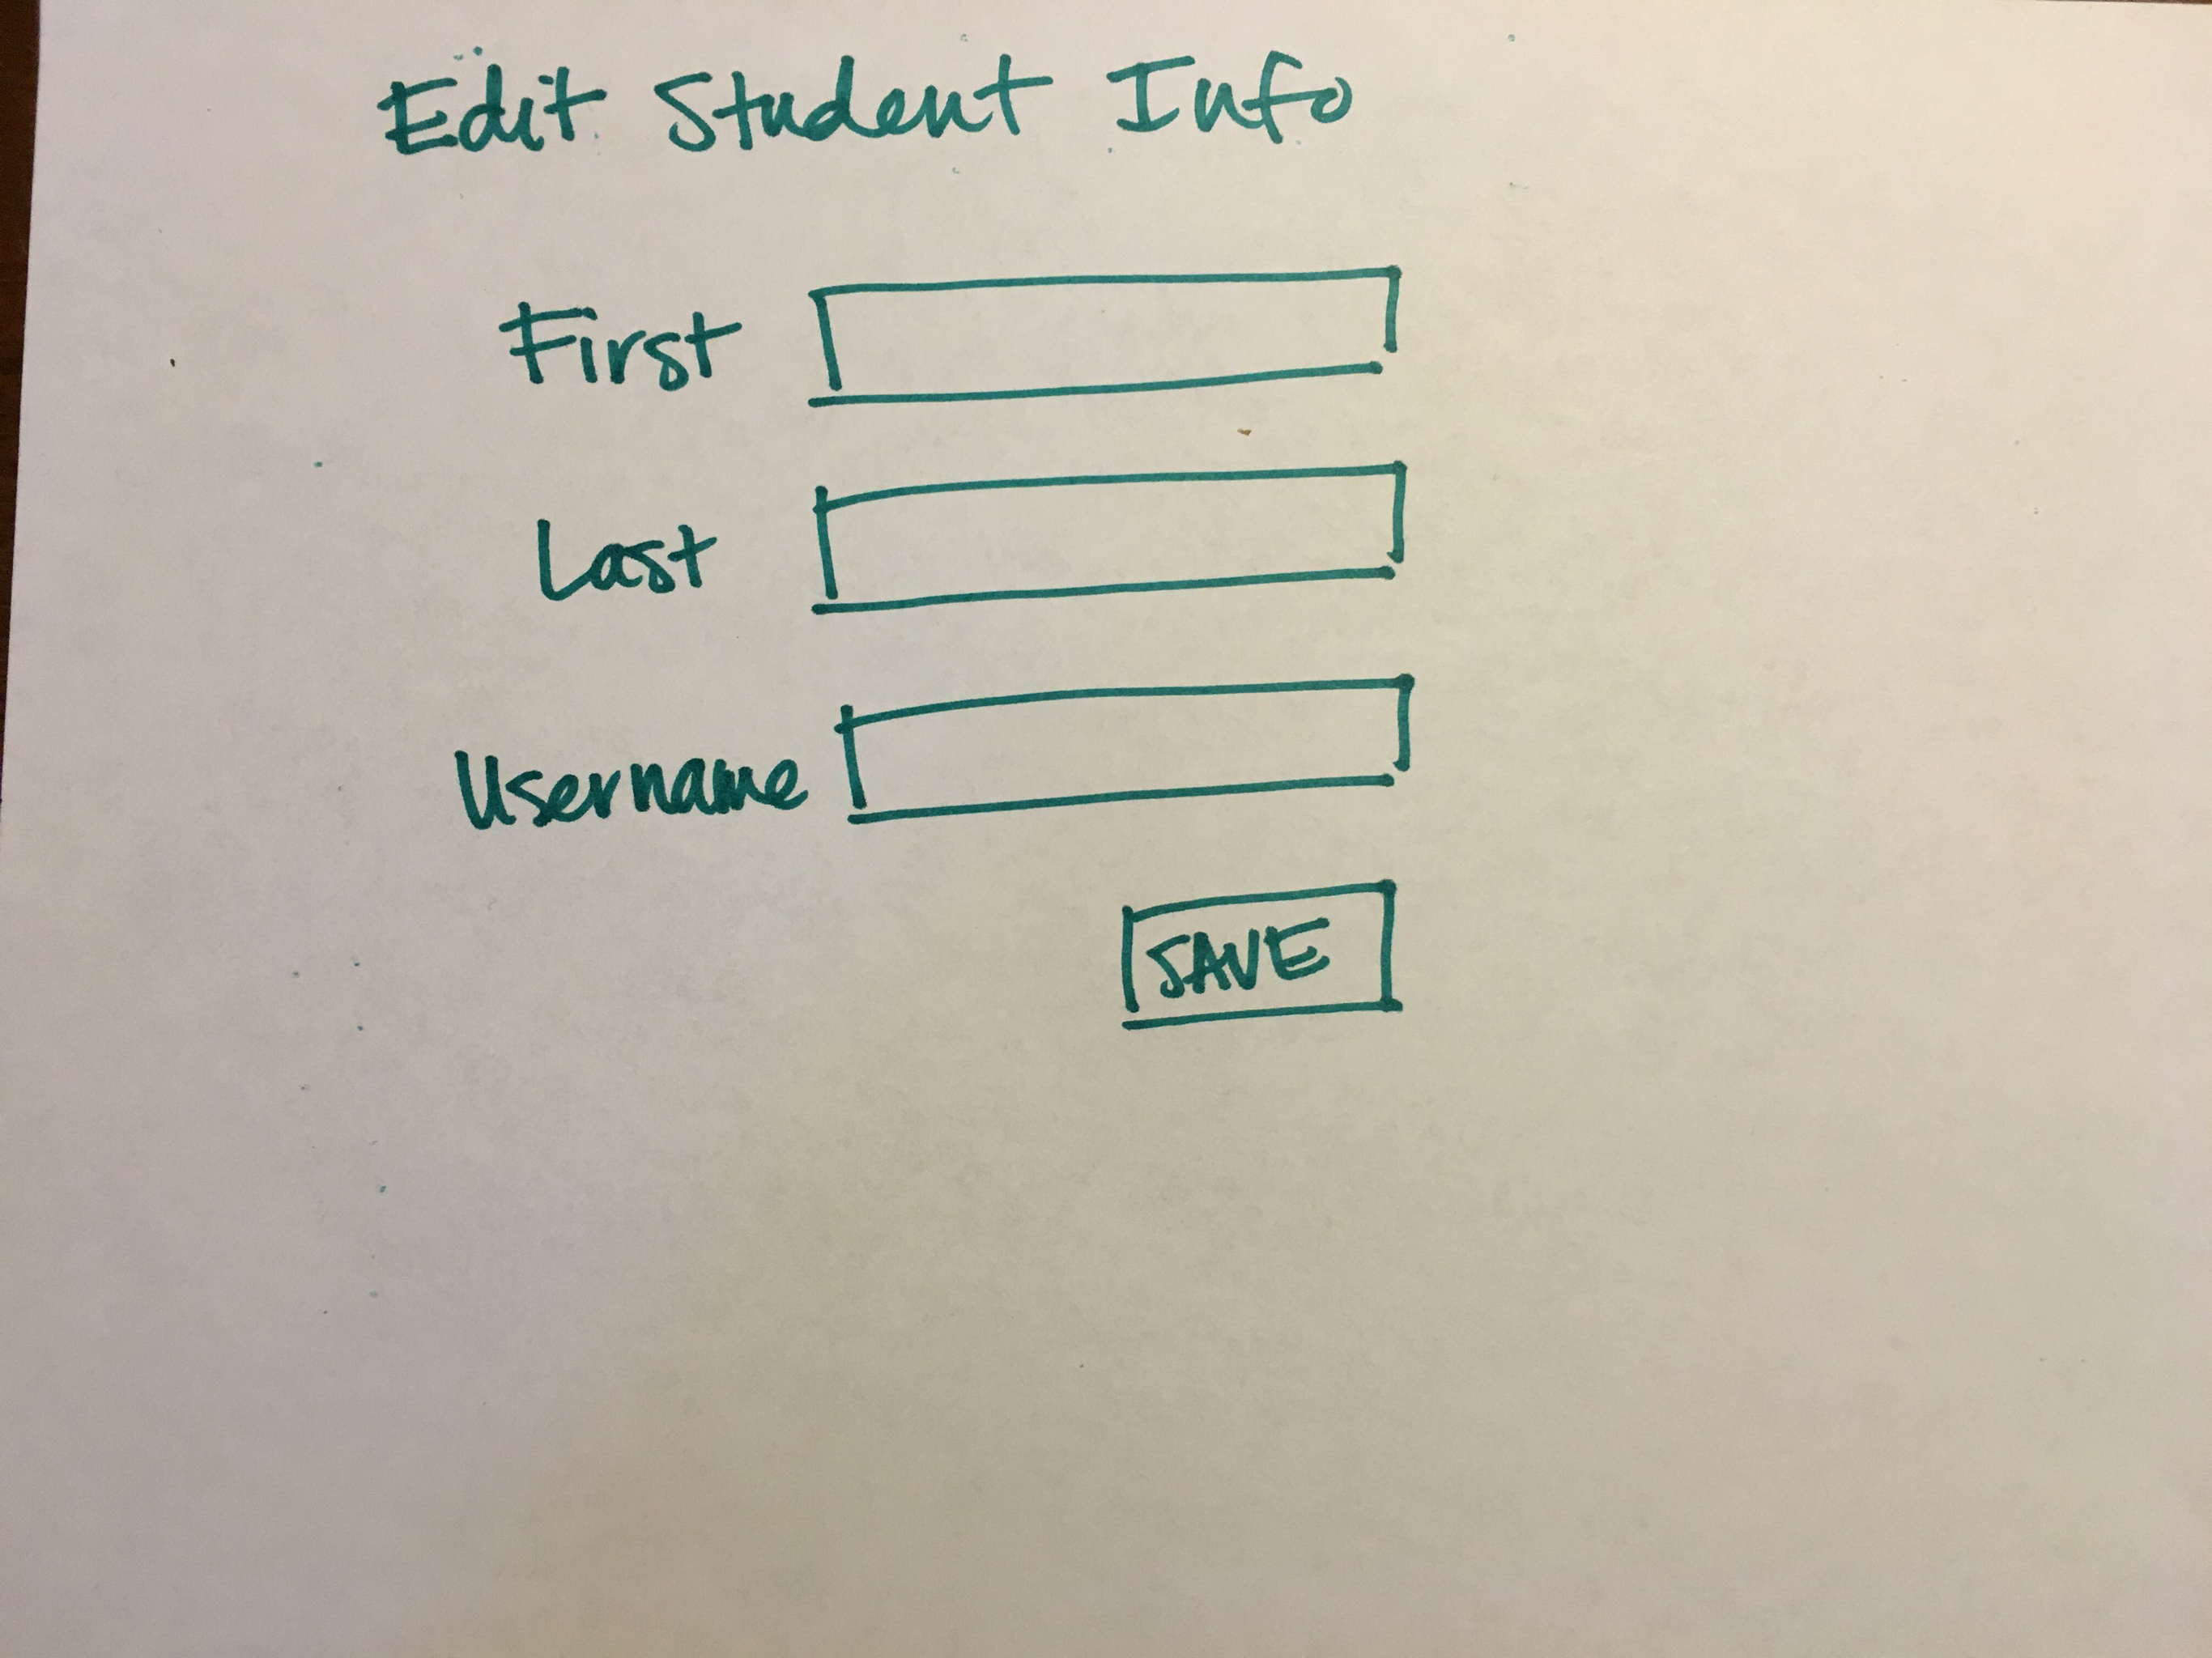 Edit Student Info
First
Last
Username
SAVE